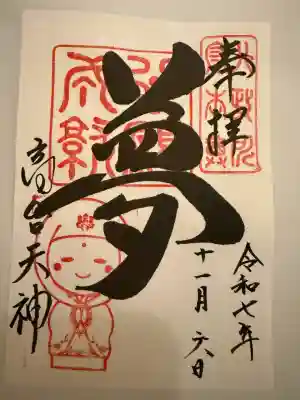 奉拝
夢
令和七年
十一月六日
高台天神